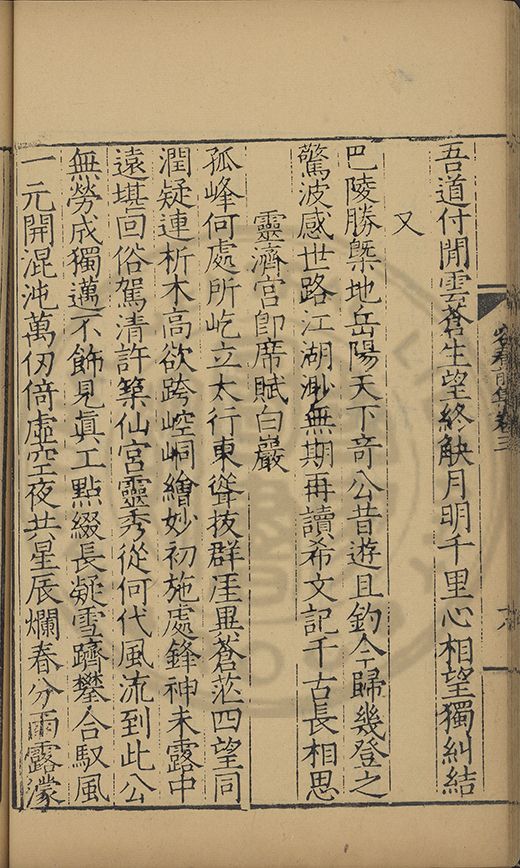 吾道付閒雲蒼生望終觖月明千里心相望獨糾結
又
巴陵勝槩地岳陽天下奇公昔遊且釣今歸幾登之
驚波感世路江湖渺無期再讀希文記千古長相思
靈濟宮卽席賦白巖
孤峰何處所屹立太行東聳拔群崖異蒼茫四望同
潤疑連析木高欲跨崆峒繪妙初施處鋒神未露中
遠堪回俗駕清許築仙宮靈秀從何代風流到此公
無勞成獨邁不飾見眞工點綴長疑雪躋攀合馭風
一元開混沌萬仞倚虛空夜共星辰爛春分雨露濛
容春前集卷三